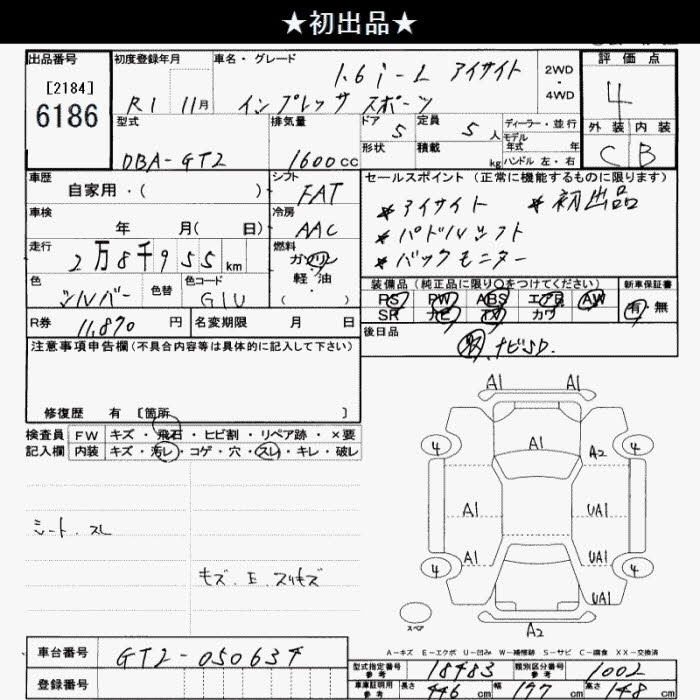 ★初出品★
出品番号 初度登録年月 車名・グレード 評価点
[2184] 1.6i-L アイサイト 2WD
6186 R1 11月 インプレッサ スポーツ ・4WD 4
型式 排気量 ドア 5 定員 5人 ディーラー・並行 外装 内装
モデル年式 年
DBA-GT2 1600cc 形状 積載 kg ハンドル 左・右 C B
車歴 自家用・( ) シフト FAT セールスポイント (正常に機能するものに限ります)
車検 年 月( 日) 冷房 AAC *アイサイト *初出品
*パドルシフト
走行 2万8千955km 燃料 ガソリン・軽油・( ) *バックモニター
色 シルバー 色替 色コード G1U 装備品 (純正品に限り○をつけてください) 新車保証書
PS PW ABS エアB AW 有・無
R券 11,870円 名変期限 月 日 SR ナビ TV カワ
注意事項申告欄(不具合内容等は具体的に記入して下さい) 後日品
取、ナビSD.
修復歴 有 [箇所 ]
検査員 FW キズ・飛石・ヒビ割・リペア跡・×要
記入欄 内装 キズ・汚レ・コゲ・穴・スレ・キレ・破レ
シート.スレ
キズ.E.スリキズ
A1 A1
4 A1 A2 4
A1 UA1
4 A1 UA1 4
UA1
スペア A2
A-キズ E-エクボ U-凹み W-補修跡 S-サビ C-腐食 XX-交換済
車台番号 GT2-050634 型式指定番号 参考 18483 類別区分番号 参考 1002
登録番号 車庫証明用 参考 長さ 446cm 幅 177cm 高さ 148cm